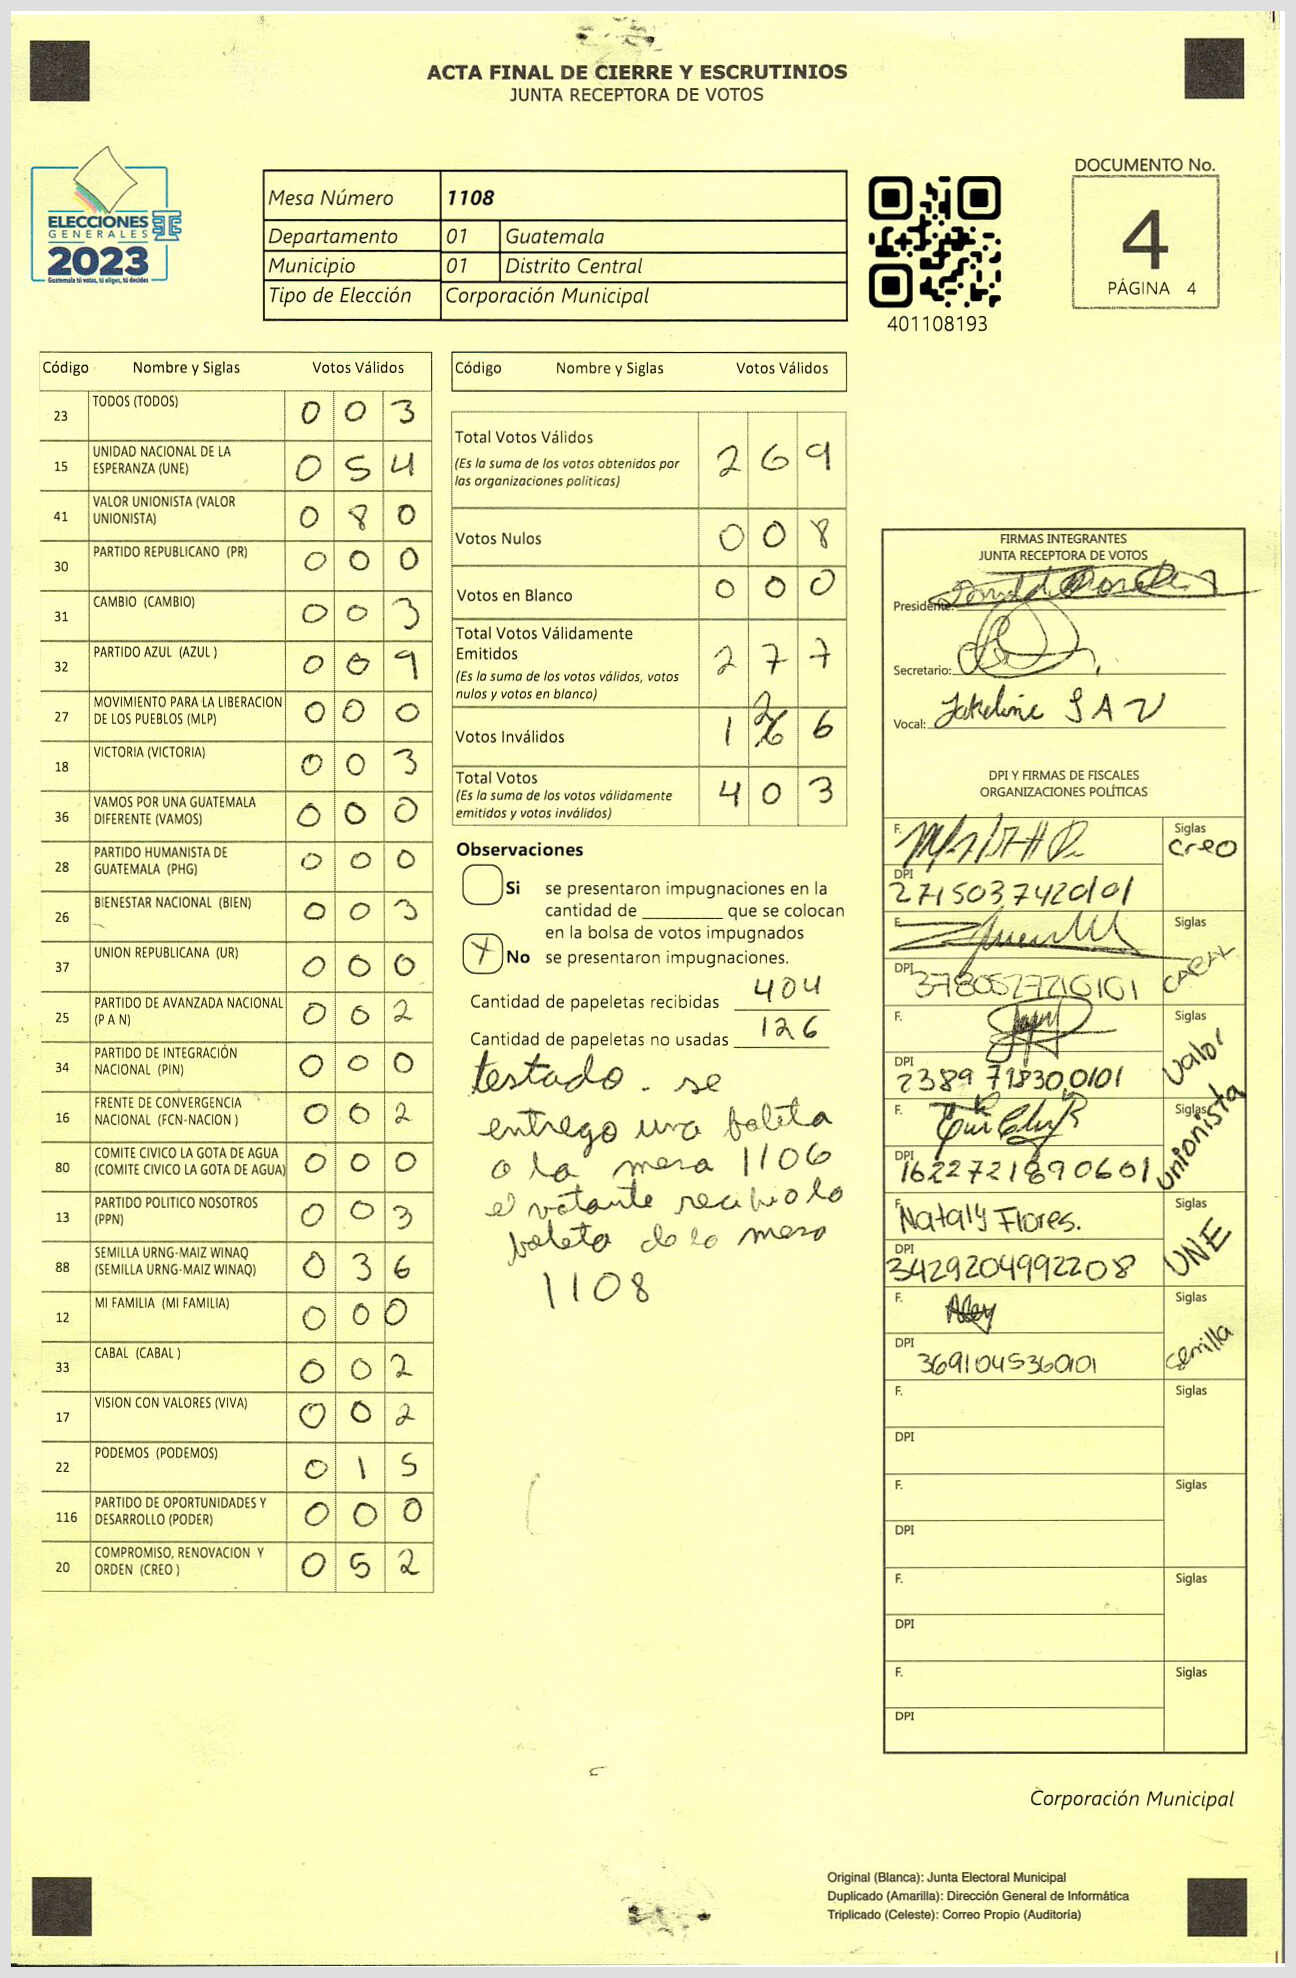 ACTA FINAL DE CIERRE Y ESCRUTINIOS
JUNTA RECEPTORA DE VOTOS
ELECCIONES
GENERALES
2023
Guatemala tú votas, tú eliges, tú decides
Mesa Número 1108
Departamento 01 Guatemala
Municipio 01 Distrito Central
Tipo de Elección Corporación Municipal
401108193
DOCUMENTO No.
4
PÁGINA 4
Código Nombre y Siglas Votos Válidos
23 TODOS (TODOS) 0 0 3
15 UNIDAD NACIONAL DE LA ESPERANZA (UNE) 0 5 4
41 VALOR UNIONISTA (VALOR UNIONISTA) 0 8 0
30 PARTIDO REPUBLICANO (PR) 0 0 0
31 CAMBIO (CAMBIO) 0 0 3
32 PARTIDO AZUL (AZUL ) 0 0 9
27 MOVIMIENTO PARA LA LIBERACION DE LOS PUEBLOS (MLP) 0 0 0
18 VICTORIA (VICTORIA) 0 0 3
36 VAMOS POR UNA GUATEMALA DIFERENTE (VAMOS) 0 0 0
28 PARTIDO HUMANISTA DE GUATEMALA (PHG) 0 0 0
26 BIENESTAR NACIONAL (BIEN) 0 0 3
37 UNION REPUBLICANA (UR) 0 0 0
25 PARTIDO DE AVANZADA NACIONAL (P A N) 0 0 2
34 PARTIDO DE INTEGRACIÓN NACIONAL (PIN) 0 0 0
16 FRENTE DE CONVERGENCIA NACIONAL (FCN-NACION ) 0 0 2
80 COMITE CIVICO LA GOTA DE AGUA (COMITE CIVICO LA GOTA DE AGUA) 0 0 0
13 PARTIDO POLITICO NOSOTROS (PPN) 0 0 3
88 SEMILLA URNG-MAIZ WINAQ (SEMILLA URNG-MAIZ WINAQ) 0 3 6
12 MI FAMILIA (MI FAMILIA) 0 0 0
33 CABAL (CABAL ) 0 0 2
17 VISION CON VALORES (VIVA) 0 0 2
22 PODEMOS (PODEMOS) 0 1 5
116 PARTIDO DE OPORTUNIDADES Y DESARROLLO (PODER) 0 0 0
20 COMPROMISO, RENOVACION Y ORDEN (CREO ) 0 5 2
Código Nombre y Siglas Votos Válidos
Total Votos Válidos 2 6 9
(Es la suma de los votos obtenidos por
las organizaciones políticas)
Votos Nulos 0 0 8
Votos en Blanco 0 0 0
Total Votos Válidamente
Emitidos 2 7 7
(Es la suma de los votos válidos, votos
nulos y votos en blanco)
Votos Inválidos 1 2 6
Total Votos 4 0 3
(Es la suma de los votos válidamente
emitidos y votos inválidos)
Observaciones
Si se presentaron impugnaciones en la
cantidad de ________ que se colocan
en la bolsa de votos impugnados
X No se presentaron impugnaciones.
Cantidad de papeletas recibidas 404
Cantidad de papeletas no usadas 126
testado. se
entrego una boleta
a la mesa 1106
el votante recibio la
boleta de la mesa
1108
FIRMAS INTEGRANTES
JUNTA RECEPTORA DE VOTOS
Presidente:
Secretario:
Vocal: Jakeline
DPI Y FIRMAS DE FISCALES
ORGANIZACIONES POLÍTICAS
F. Siglas creo
DPI 2715037420101
F. Siglas
DPI 3780527210101
F. Siglas Valor
DPI 2389 71830,0101
F. Siglas unionista
DPI 1622721890601
F. Nataly Flores. Siglas UNE
DPI 3429204992208
F. Siglas semilla
DPI 3691045360101
F. Siglas
DPI
F. Siglas
DPI
F. Siglas
DPI
F. Siglas
DPI
Corporación Municipal
Original (Blanca): Junta Electoral Municipal
Duplicado (Amarilla): Dirección General de Informática
Triplicado (Celeste): Correo Propio (Auditoría)